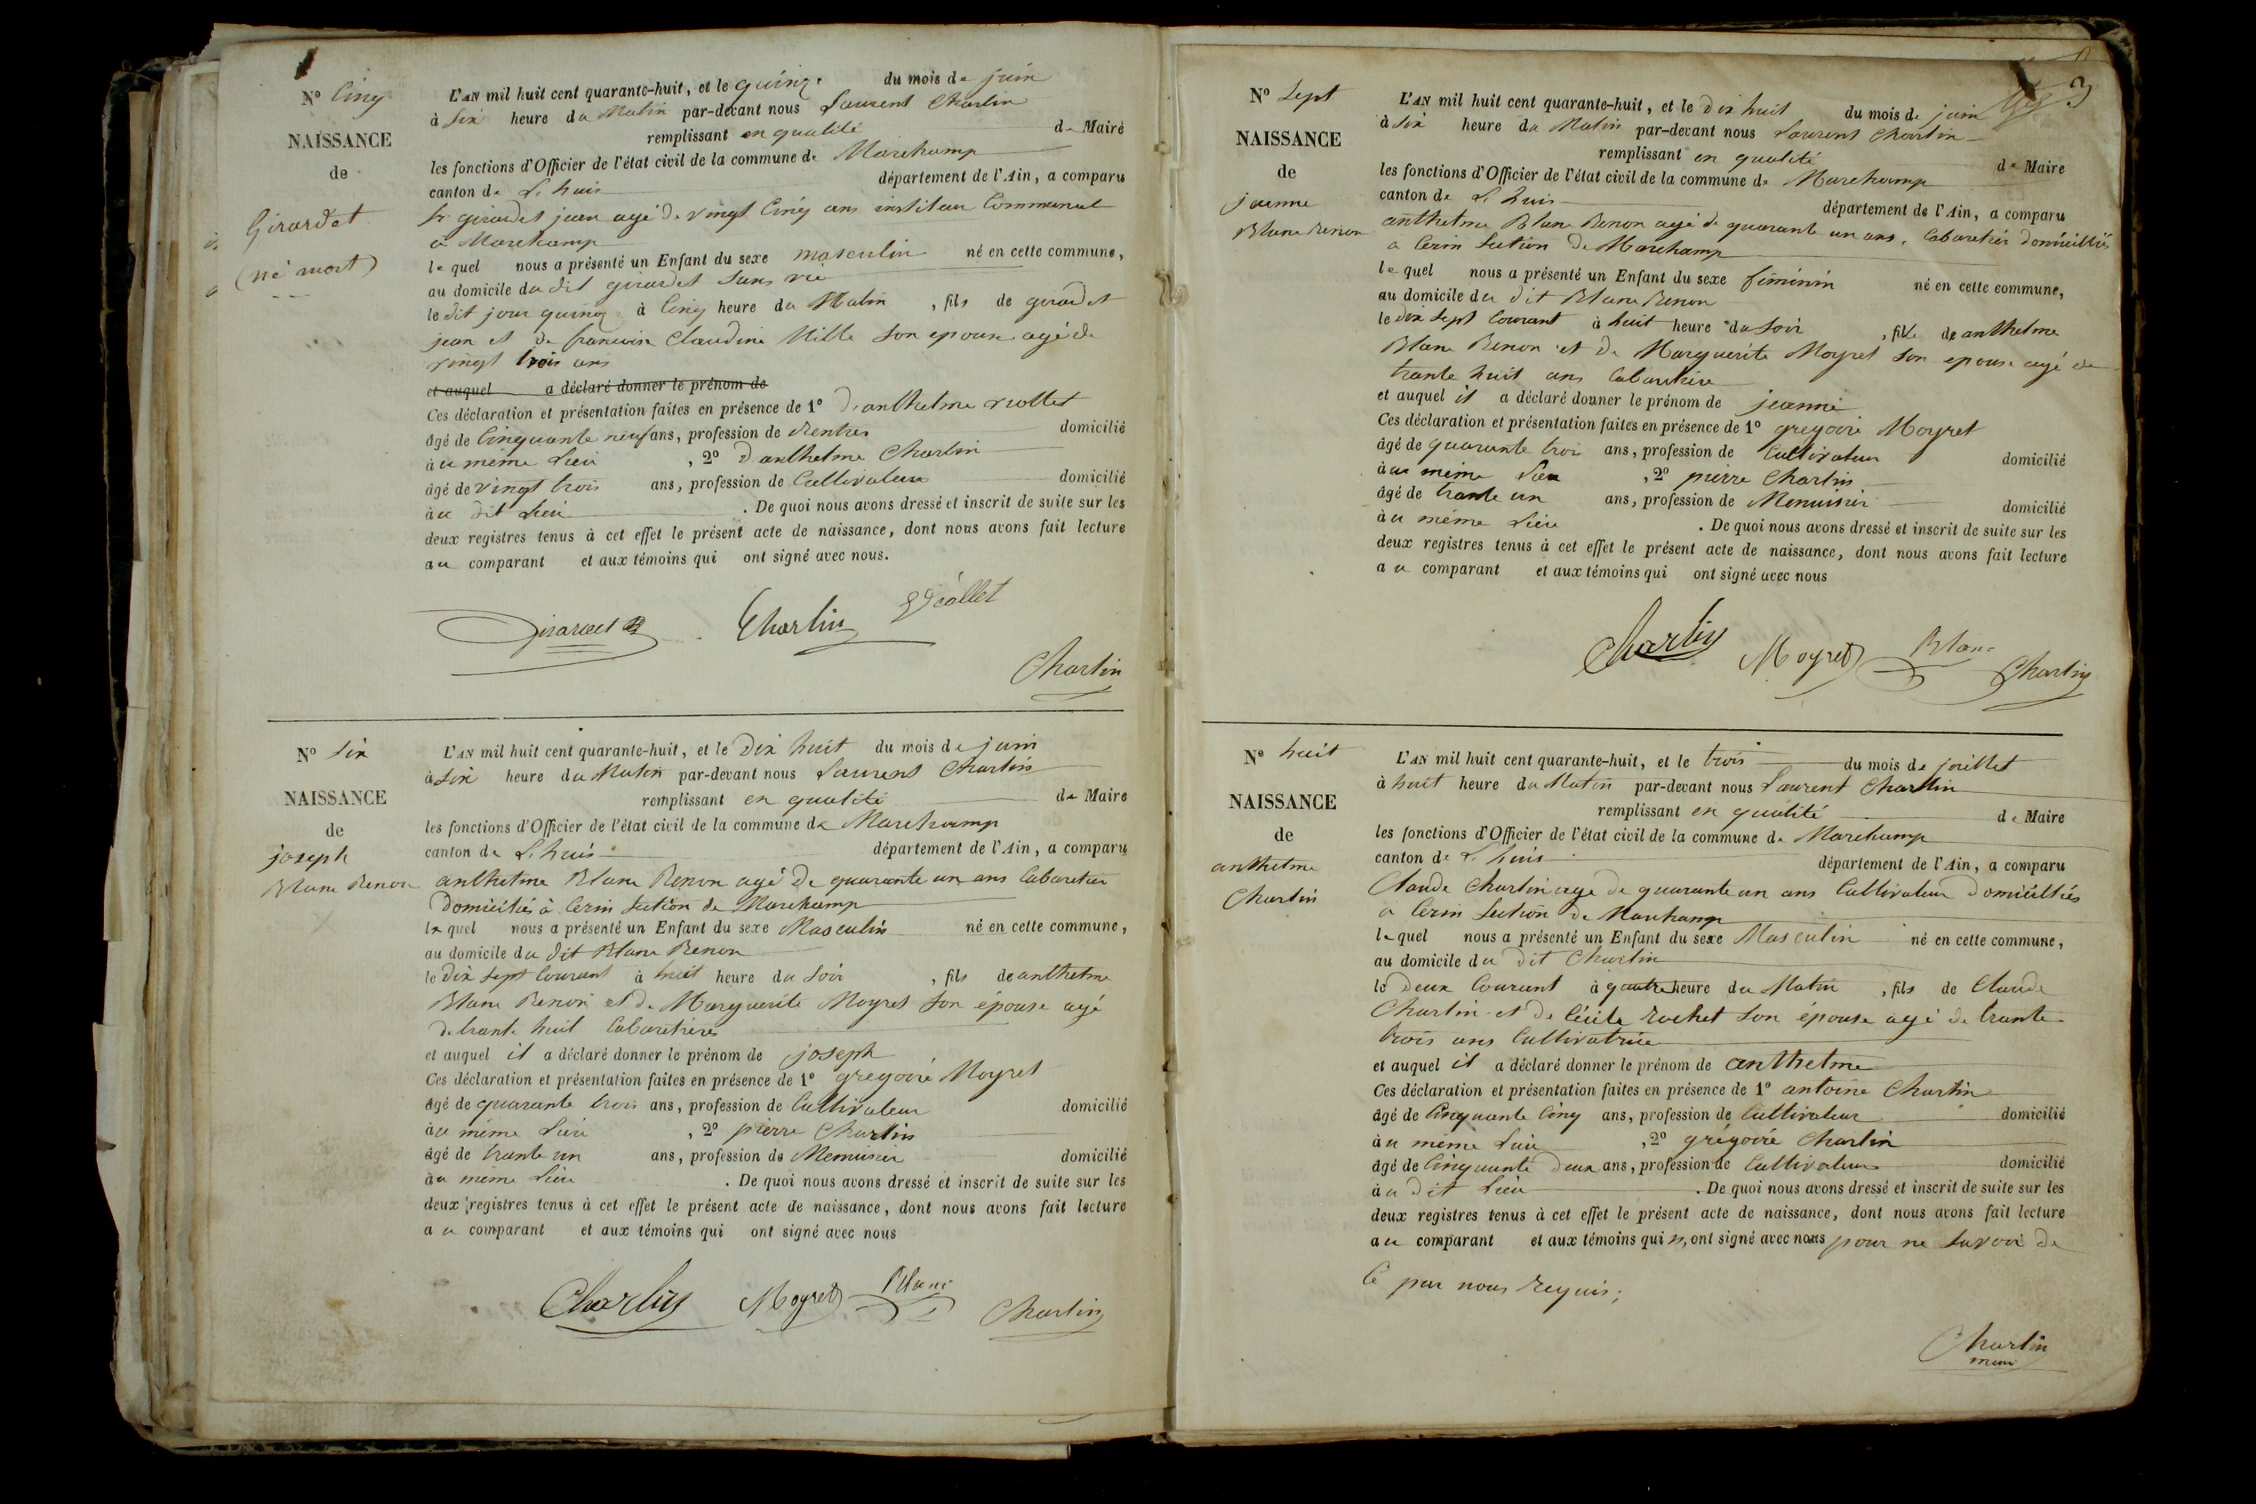 N° Cinq
NAISSANCE
de
Girardet
(né mort)
L'AN mil huit cent quarante-huit, et le quinze du mois de juin
à six heure du Matin par-devant nous Laurent Charlin
remplissant en qualité de Maire
les fonctions d'Officier de l'état civil de la commune de Marchamp
canton de L. huis département de l'Ain, a comparu
Sr girardet jean agé de vingt Cinq ans instituteur Communal
a Marchamp
le quel nous a présenté un Enfant du sexe masculin né en cette commune,
au domicile du dit girardet sans vie
le dit jour quinze à Cinq heure du Matin, fils de girardet
jean et de Claudine Mille son epouse agé de
vingt trois ans
et auquel a déclaré donner le prénom de
Ces déclaration et présentation faites en présence de 1° d'anthelme viollet
âgé de Cinquante neuf ans, profession de Rentier domicilié
à u même Lieu, 2° d'anthelme Charlin
âgé de vingt trois ans, profession de Cultivateur domicilié
à u dit Lieu. De quoi nous avons dressé et inscrit de suite sur les
deux registres tenus à cet effet le présent acte de naissance, dont nous avons fait lecture
a u comparant et aux témoins qui ont signé avec nous.
Girardet Charlin Viollet
Charlin
N° Six
NAISSANCE
de
joseph
Blanc Renon
L'AN mil huit cent quarante-huit, et le Dix huit du mois de juin
à six heure du Matin par-devant nous Laurent Charlin
remplissant en qualité de Maire
les fonctions d'Officier de l'état civil de la commune de Marchamp
canton de L. huis département de l'Ain, a comparu
anthelme Blanc Renon agé de quarante un ans Cabaretier
Domiciliés à Cerin Section de Marchamp
le quel nous a présenté un Enfant du sexe Masculin né en cette commune,
au domicile du dit Blanc Renon
le Dix sept Courant à huit heure du Soir, fils de anthelme
Blanc Renon et de Marguerite Moyret son épouse agé
de trante huit Cabaretière
et auquel il a déclaré donner le prénom de joseph
Ces déclaration et présentation faites en présence de 1° gregoire Moyret
âgé de quarante trois ans, profession de Cultivateur domicilié
à u même Lieu, 2° pierre Charlin
âgé de trante un ans, profession de Menuisier domicilié
à u même Lieu. De quoi nous avons dressé et inscrit de suite sur les
deux registres tenus à cet effet le présent acte de naissance, dont nous avons fait lecture
a u comparant et aux témoins qui ont signé avec nous
Charlin Moyret Blanc Charlin
3
N° Sept
NAISSANCE
de
jeanne
Blanc Renon
L'AN mil huit cent quarante-huit, et le Dix huit du mois de juin
à six heure du Matin par-devant nous Laurent Charlin
remplissant en qualité de Maire
les fonctions d'Officier de l'état civil de la commune de Marchamp
canton de L. huis département de l'Ain, a comparu
anthelme Blanc Renon agé de quarante un ans, Cabaretier domiciliés
a Cerin Section de Marchamp
le quel nous a présenté un Enfant du sexe féminin né en cette commune,
au domicile du dit Blanc Renon
le dix sept Courant à huit heure du Soir, fille de anthelme
Blanc Renon et de Marguerite Moyret son epouse agé de
trante huit ans Cabaretière
et auquel il a déclaré donner le prénom de jeanne
Ces déclaration et présentation faites en présence de 1° gregoire Moyret
âgé de quarante trois ans, profession de Cultivateur domicilié
à u même Lieu, 2° pierre Charlin
âgé de trante un ans, profession de Menuisier domicilié
à u même Lieu. De quoi nous avons dressé et inscrit de suite sur les
deux registres tenus à cet effet le présent acte de naissance, dont nous avons fait lecture
a u comparant et aux témoins qui ont signé avec nous
Charlin Moyret Blanc Charlin
N° huit
NAISSANCE
de
anthelme
Charlin
L'AN mil huit cent quarante-huit, et le trois du mois de jouillet
à huit heure du Matin par-devant nous Laurent Charlin
remplissant en qualité de Maire
les fonctions d'Officier de l'état civil de la commune de Marchamp
canton de L. huis département de l'Ain, a comparu
Claude Charlin age de quarante un ans Cultivateur Domiciliés
a Cerin Section de Marchamp
le quel nous a présenté un Enfant du sexe Masculin né en cette commune,
au domicile du dit Charlin
le deux Courant à quatre heure du Matin, fils de Claude
Charlin et de Cécile rochet son épouse agé de trante
trois ans Cultivatrice
et auquel il a déclaré donner le prénom de anthelme
Ces déclaration et présentation faites en présence de 1° antoine Charlin
âgé de Cinquante Cinq ans, profession de Cultivateur domicilié
à u même Lieu, 2° grégoire Charlin
âgé de Cinquante deux ans, profession de Cultivateur domicilié
à u dit Lieu. De quoi nous avons dressé et inscrit de suite sur les
deux registres tenus à cet effet le présent acte de naissance, dont nous avons fait lecture
a u comparant et aux témoins qui n'ont signé avec nous pour ne savoir de
Ce par nous Requis;
Charlin
maire